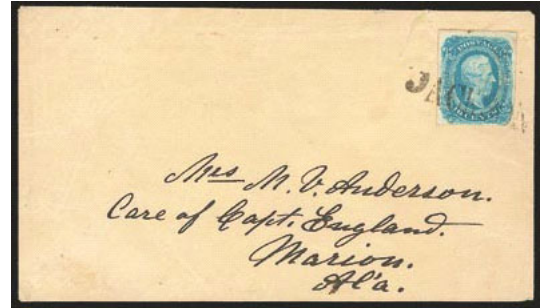 POSTAGE
CENTS
Mrs M. V. Anderson.
Care of Capt. England.
Marion.
Al'a.